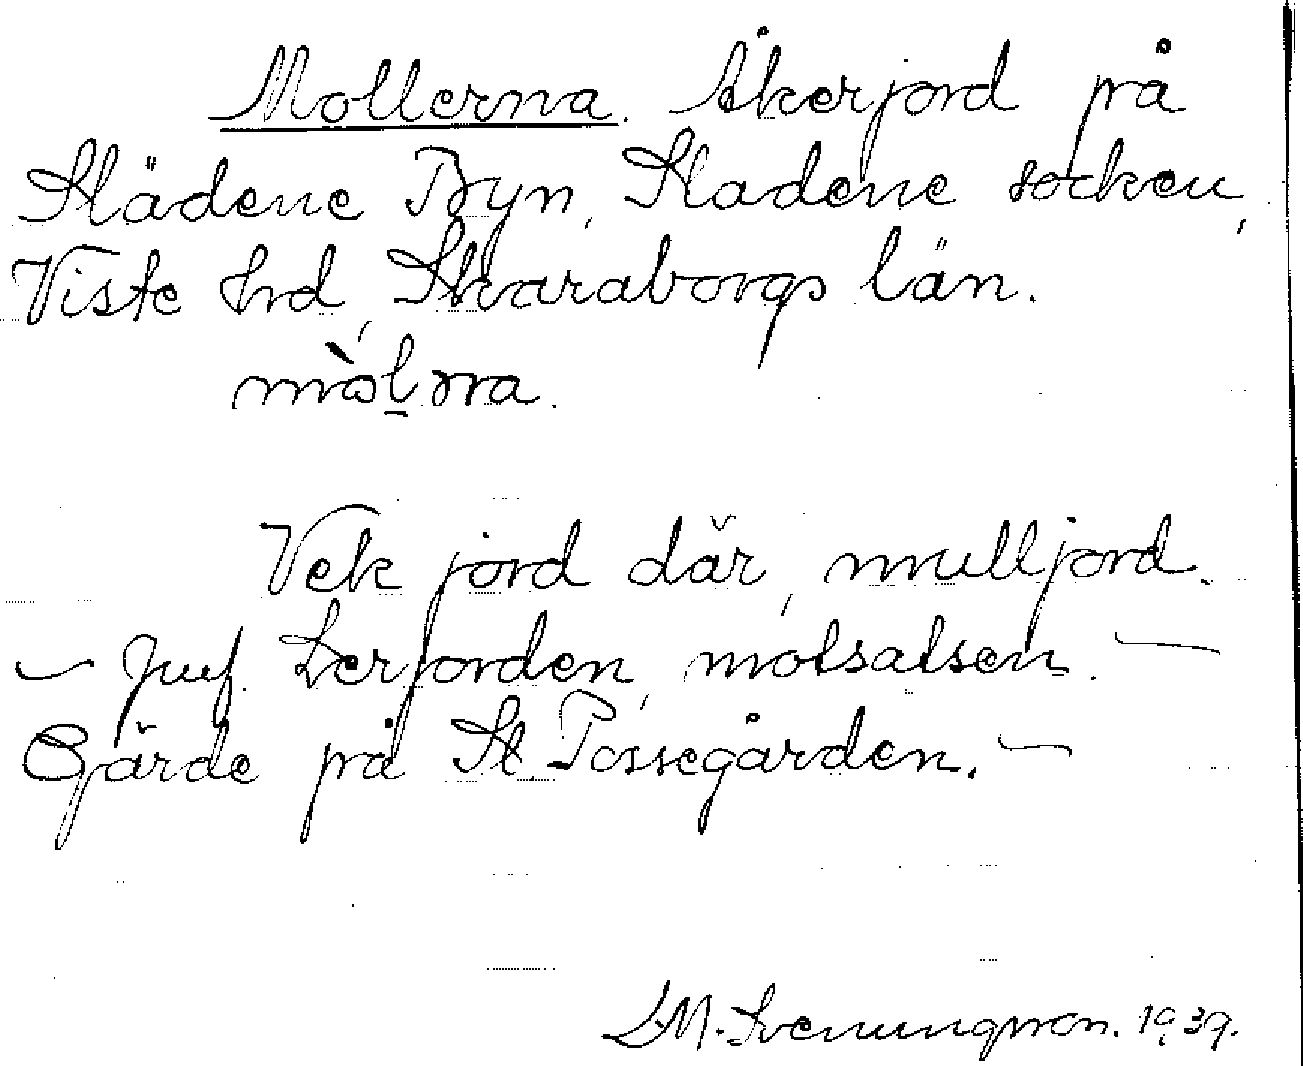 Mollerna. Åkerjord på
Slädene Byn, Sladene socken,
Viste hrd, Skaraborgs län.
mòl̠ɤa.
Vek jord där, mulljord.
— Juf. Lerjorden, motsatsen. —
Gärde på St. Possegården. —
S.M. Svenungsson. 1939.